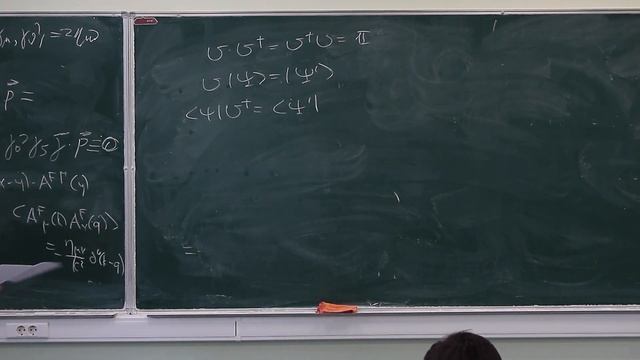 γ_μ, γ_ν}, = 2η_μν
p⃗ =
γ_0 γ_5 γ⃗ · p⃗ ≡ 0
x-y) · A^F Γ(y)
⟨A^F_μ(k) A^F_ν(q)⟩
= -η_μν/k² δ⁴(k-q)
U · U† = U† U = 𝕀
U |Ψ⟩ = |Ψ'⟩
⟨Ψ| U† = ⟨Ψ'|
=